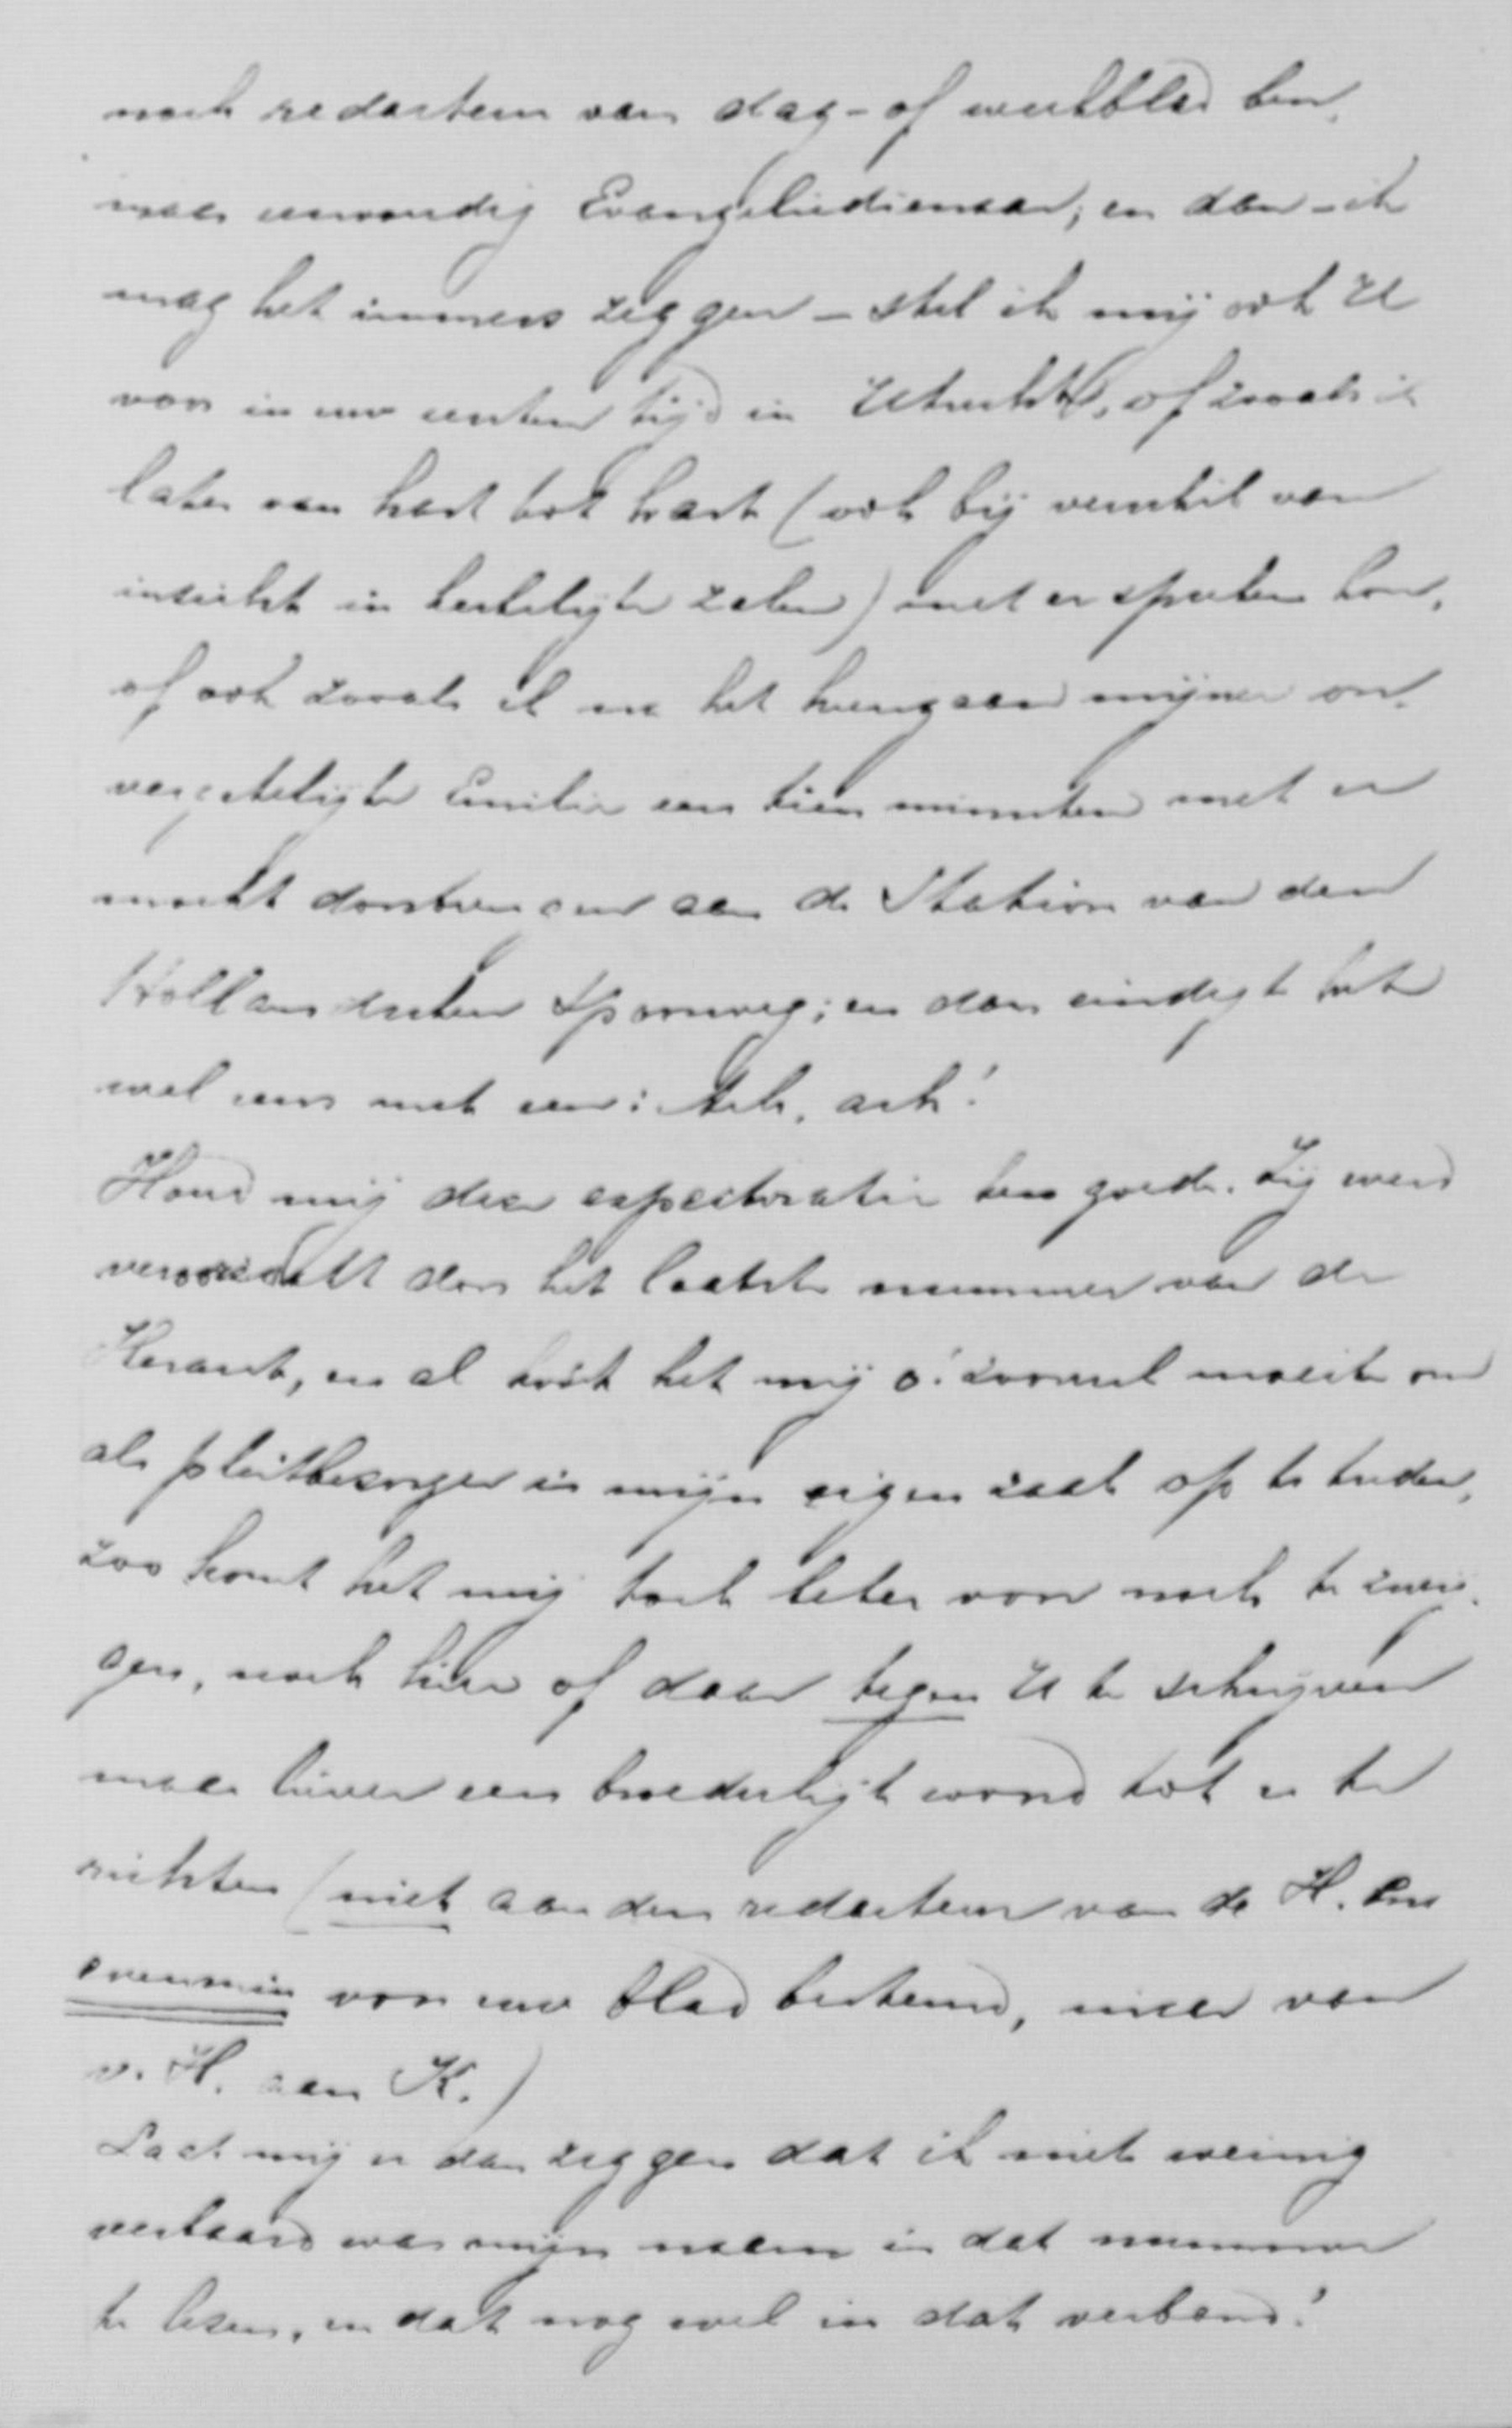 noch redacteur van dag- of weekblad ben,
maar eenvoudig Evangeliedienaar; en dan - ik
mag het immers zeggen - stel ik mij ook U
voor in uw eersten tijd in Utrecht, of zooals ik
later van hart tot hart (ook bij verschil van
inzicht in kerkelijke zaken) met u spreken kon,
of ook zooals ik na het heengaan mijner on-
vergetelijke Emilie een tien minuten met u
mocht doorbrengen aan de Station van den
Hollandschen Spoorweg; en dan eindigt het
wel eens met een: Ach, ach!
Houd mij deze expectoratie ten goede. Zij werd
veroorzaakt door het laatste nummer van de
Heraut, en al kost het mij o! zooveel moeite om
als pleitbezorger in mijn eigen zaak op te treden,
zoo komt het mij toch beter voor noch te zwij-
gen, noch hier of daar tegen U te schrijven
maar liever een broederlijk woord tot u te
richten (niet aan den redacteur van de H. en
evenmin voor uw blad bestemd, maar van
v. H. aan K.)
Laat mij u dan zeggen dat ik niet weinig
verbaasd was mijn naam in dat nummer
te lezen, en dat nog wel in dat verband!